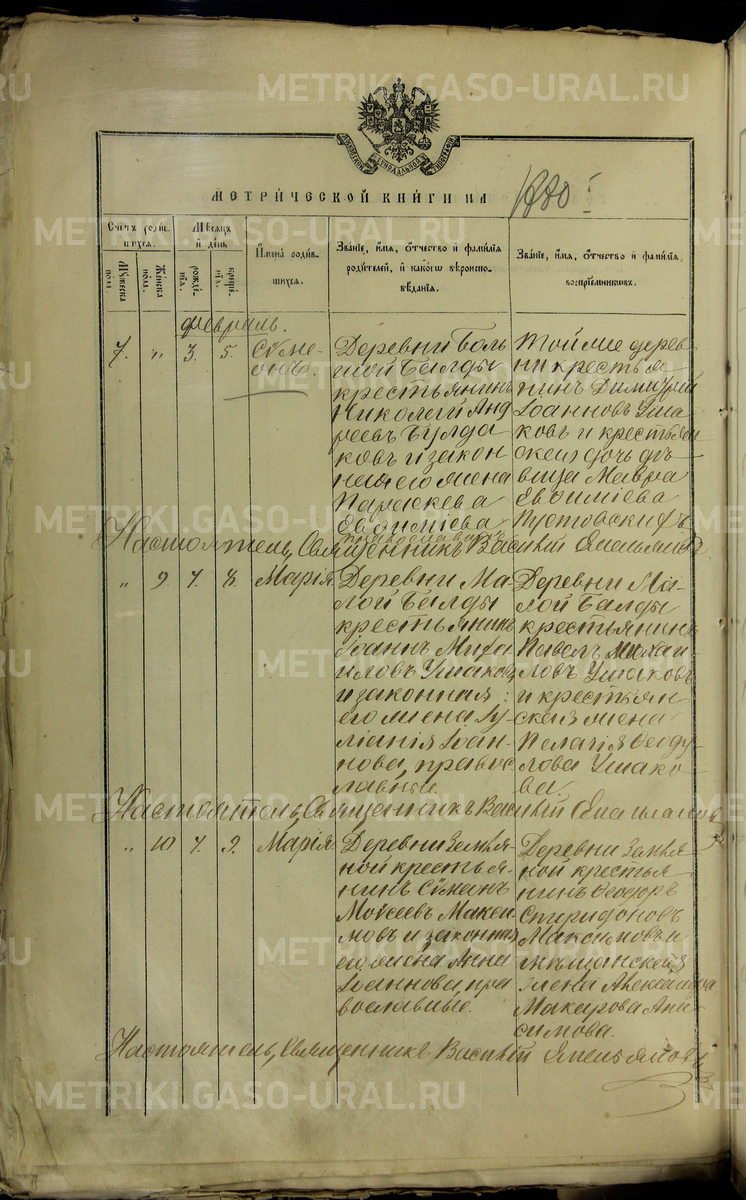 METRIKI.GASO-URAL.RU
МЕТРИ́ЧЕСКОЙ КНИ́ГИ НА 1880 г.
Счетъ роди́в-
шихся.
Му́жеска
пола.
Же́нска
пола.
Мѣсяцъ
и́ де́нь
рожде́-
нїя.
креще́-
нїя.
И҆мена роди́в-
шихся.
Зва́нїе, и҆мя, ѻ҆́тчество и҆ фами́лїя
роди́телей, и҆ како́гѡ вѣроиспо-
вѣ́данїя.
Зва́нїе, и҆мя, ѻ҆́тчество и҆ фами́лїя
воспрїе́мниковъ.
Февраль.
7. " 3. 5.
Сѵме-
онъ.
Деревни Боль
шой Балды
крестьянинъ
Николай Анд
реевъ Булда
ковъ и закон
ная его жена
Параскева
Евѳиміева
православн.
Той же дерев
ни крестья
нинъ Димитрій
Іоанновъ Уша
ковъ и крестьян
ская дочь дѣ
вица Мавра
Евѳиміева
Пустовскихъ
Настоятель, Священникъ Василій Емельяновъ
" 9 7. 8.
Марія
Деревни Ма-
лой Балды
крестьянинъ
Іоаннъ Миха
иловъ Ушаковъ
и законная
его жена Іу-
ліанія Іоан-
нова, правос
лавныя.
Деревни Ма-
лой Балды
крестьянинъ
Павелъ Михаи
ловъ Ушаковъ
и крестьян
ская жена
Пелагія Ѳеоду
лова Ушако-
ва.
Настоятель, Священникъ Василій Емельяновъ
" 10 7. 9.
Марія
Деревни Земля-
ной крестья-
нинъ Сѵмеонъ
Моѵсеевъ Макси
мовъ и законная
его жена Анна
Іоаннова, пра
вославные.
Деревни Земля
ной крестья
нинъ Ѳеодоръ
Спиридоновъ
Максимовъ и
мѣщанская
жена Александра
Макарова Ани
симова.
Настоятель, Священникъ Василій Емельяновъ